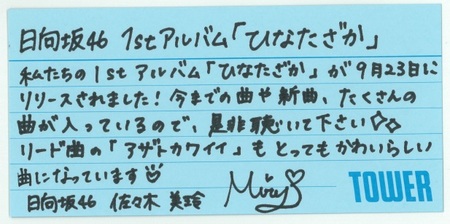 日向坂46 1stアルバム「ひなたざか」
私たちの1stアルバム「ひなたざか」が9月23日に
リリースされました!今までの曲や新曲、たくさんの
曲が入っているので、是非聴いて下さい☆☆
リード曲の「アザトカワイイ」もとってもかわいらしい
曲になっています
日向坂46 佐々木 美玲 Mirei
TOWER